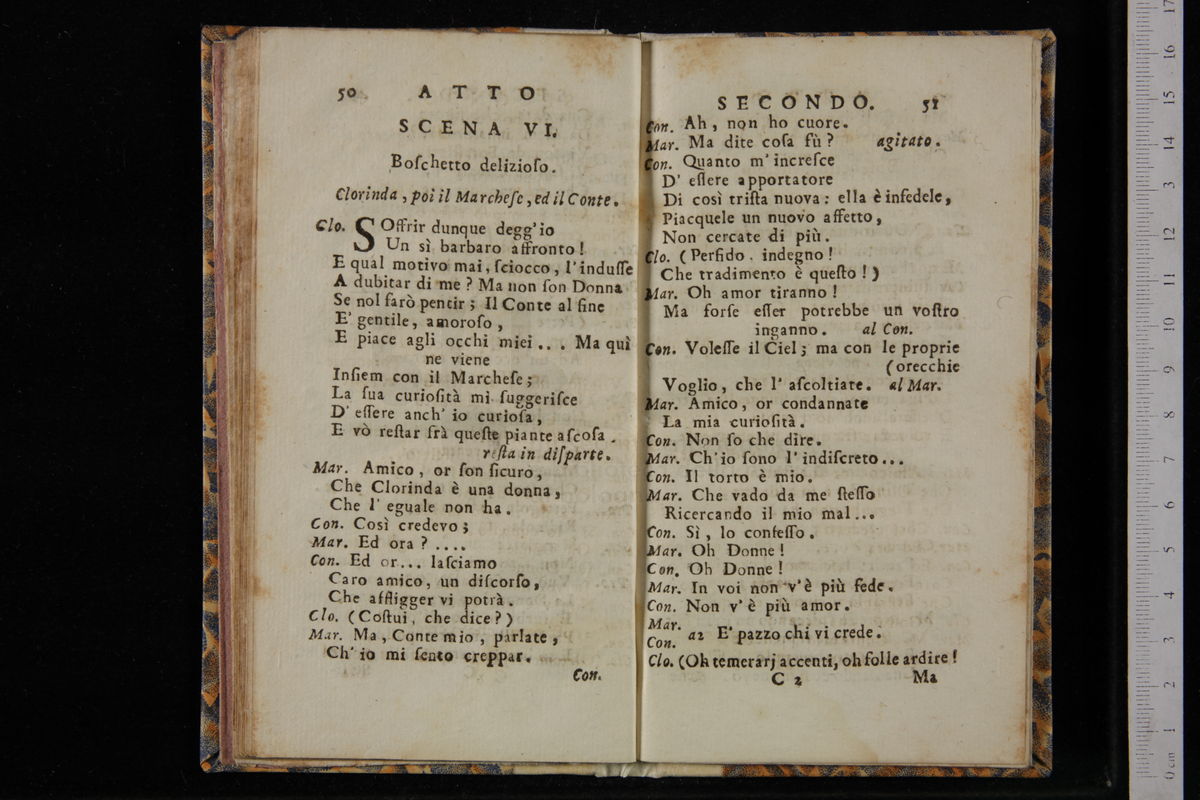 50 ATTO
SCENA VI.
Boſchetto delizioſo.
Clorinda, poi il Marcheſe, ed il Conte.
Clo. SOffrir dunque degg'io
Un sì barbaro affronto!
E qual motivo mai, ſciocco, l'induſſe
A dubitar di me? Ma non ſon Donna
Se nol farò pentir; Il Conte al fine
E' gentile, amoroſo,
E piace agli occhi miei... Ma quì
ne viene
Inſiem con il Marcheſe;
La ſua curioſità mi ſuggeriſce
D' eſſere anch' io curioſa,
E vò reſtar frà queſte piante aſcoſa.
reſta in diſparte.
Mar. Amico, or ſon ſicuro,
Che Clorinda è una donna,
Che l' eguale non ha.
Con. Così credevo;
Mar. Ed ora? ....
Con. Ed or... laſciamo
Caro amico, un diſcorſo,
Che affligger vi potrà.
Clo. (Coſtui, che dice?)
Mar. Ma, Conte mio, parlate,
Ch' io mi ſento creppar.
Con.
SECONDO. 51
Con. Ah, non ho cuore.
Mar. Ma dite coſa fù? agitato.
Con. Quanto m' increſce
D' eſſere apportatore
Di così triſta nuova: ella è infedele,
Piacquele un nuovo affetto,
Non cercate di più.
Clo. (Perfido, indegno!
Che tradimento è queſto!)
Mar. Oh amor tiranno!
Ma forſe eſſer potrebbe un voſtro
inganno. al Con.
Con. Voleſſe il Ciel; ma con le proprie
(orecchie
Voglio, che l' aſcoltiate. al Mar.
Mar. Amico, or condannate
La mia curioſità.
Con. Non ſo che dire.
Mar. Ch'io ſono l' indiſcreto...
Con. Il torto è mio.
Mar. Che vado da me ſteſſo
Ricercando il mio mal...
Con. Sì, lo confeſſo.
Mar. Oh Donne!
Con. Oh Donne!
Mar. In voi non v'è più fede.
Con. Non v' è più amor.
Mar.
Con. a2 E' pazzo chi vi crede.
Clo. (Oh temerarj accenti, oh folle ardire!
C 2 Ma
0 cm 1 2 3 4 5 6 7 8 9 10 11 12 13 14 15 16 17